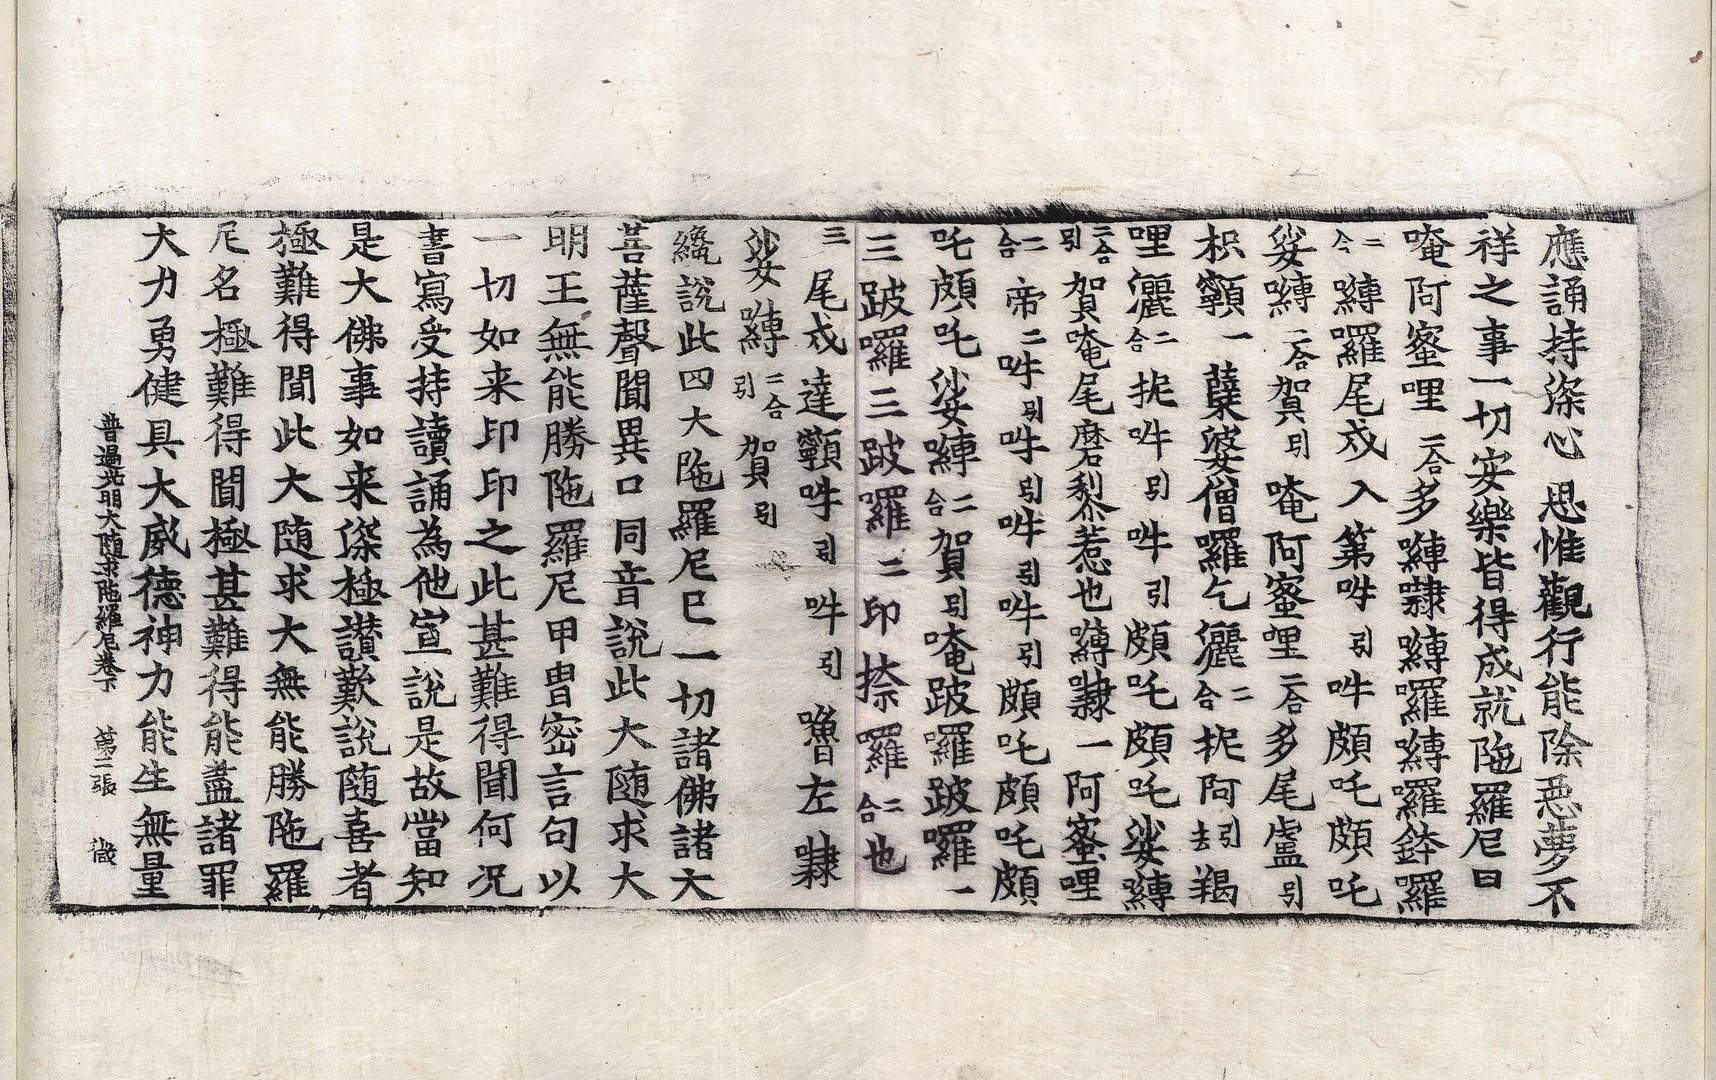 應誦持深心思惟觀行能除惡夢不
祥之事一切安樂皆得成就陁羅尼曰
唵阿蜜哩二合多嚩隷嚩囉嚩囉鉢囉
二合嚩囉尾戍入第吽引吽頗吒頗吒
娑嚩二合賀引唵阿蜜哩二合多尾盧引
枳顙一孽婆僧囉乞儷二合抳阿去引羯
哩儷二合抳吽引吽引頗吒頗吒娑嚩
二合引賀唵尾磨黎惹也嚩隷一阿蜜哩
二合帝二吽引吽引吽引吽引頗吒頗吒頗
吒頗吒娑嚩二合賀引唵跛囉跛囉一
三跛囉三跛囉二印捺囉二合也
三尾戍達顙吽引吽引嚕左隷
娑嚩二合引賀引
纔說此四大陁羅尼已一切諸佛諸大
菩薩聲聞異口同音說此大随求大
明王無能勝陁羅尼甲胄密言句以
一切如来印印之此甚難得聞何况
書寫受持讀誦為他宣說是故當知
是大佛事如来深極讃歎說随喜者
極難得聞此大随求大無能勝陁羅
尼名極難得聞極甚難得能盡諸罪
大力勇健具大威德神力能生無量
普遍光明大随求陁羅尼卷下 第二張 誠